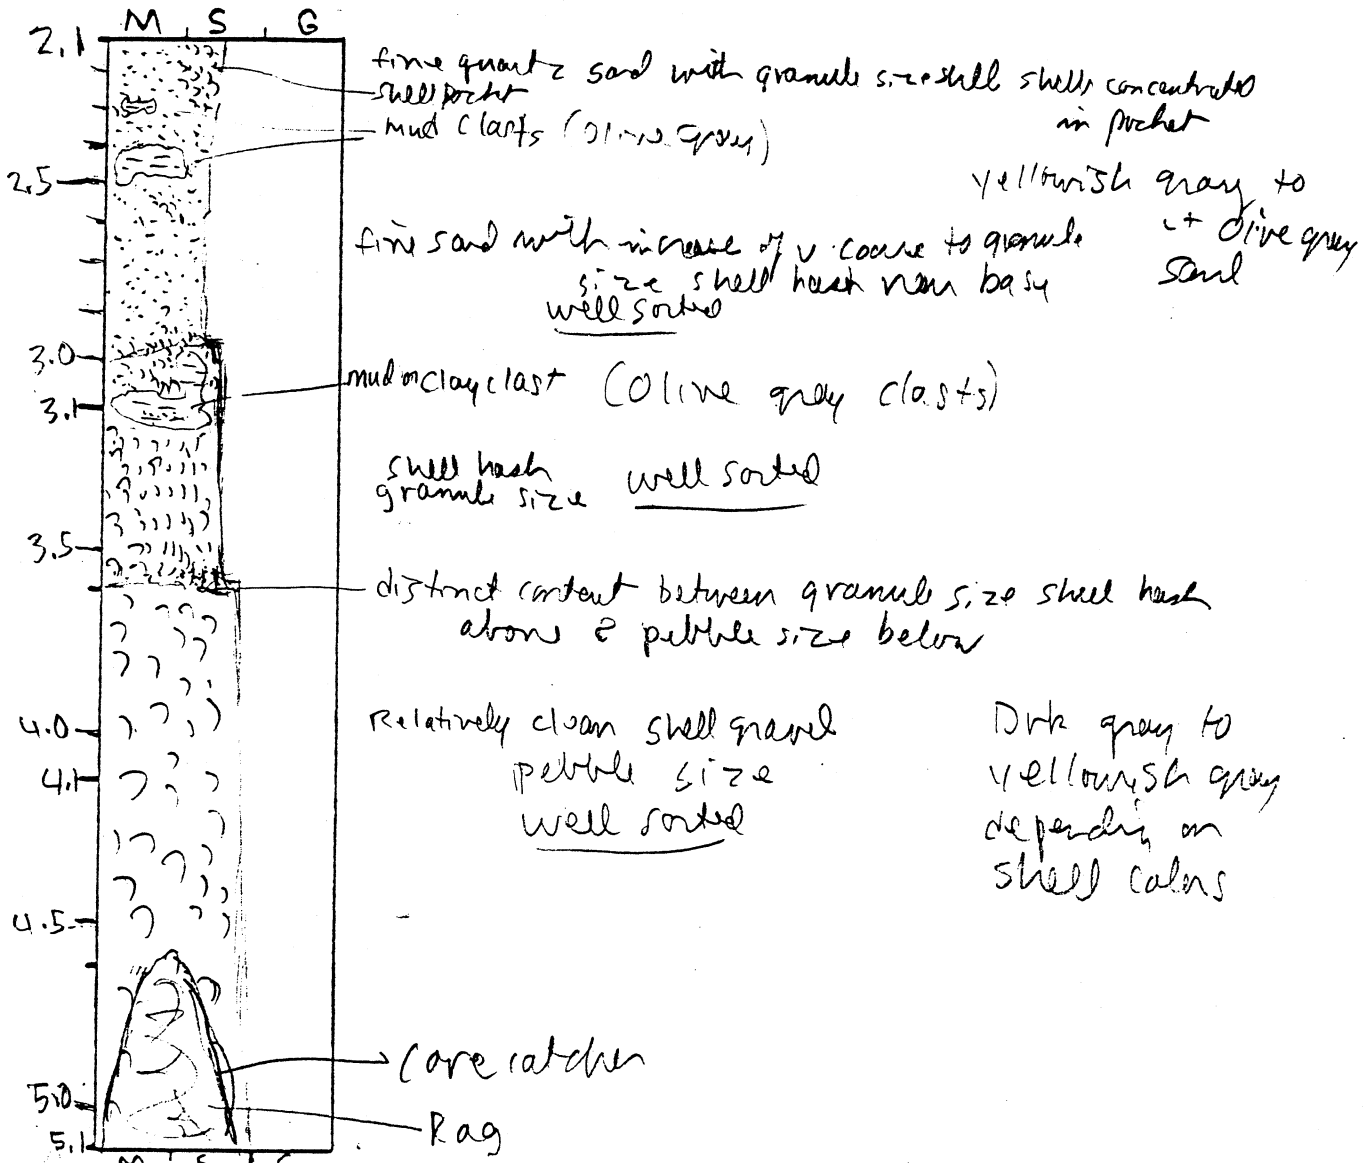 M S G
2.1
fine quartz sand with granule size shell shells concentrated
in pocket
shell pocket
mud clasts (olive gray)
2.5
yellowish gray to
lt olive gray
sand
fine sand with increase of v. coarse to granule
size shell hash near base
well sorted
3.0
mud or clay clast (olive gray clasts)
3.1
shell hash
granule size well sorted
3.5
distinct contact between granule size shell hash
above & pebble size below
4.0
Relatively clean shell gravel
pebble size
well sorted
Drk gray to
yellowish gray
depending on
shell colors
4.1
4.5
Core catcher
5.0
Rag
5.1
M S G